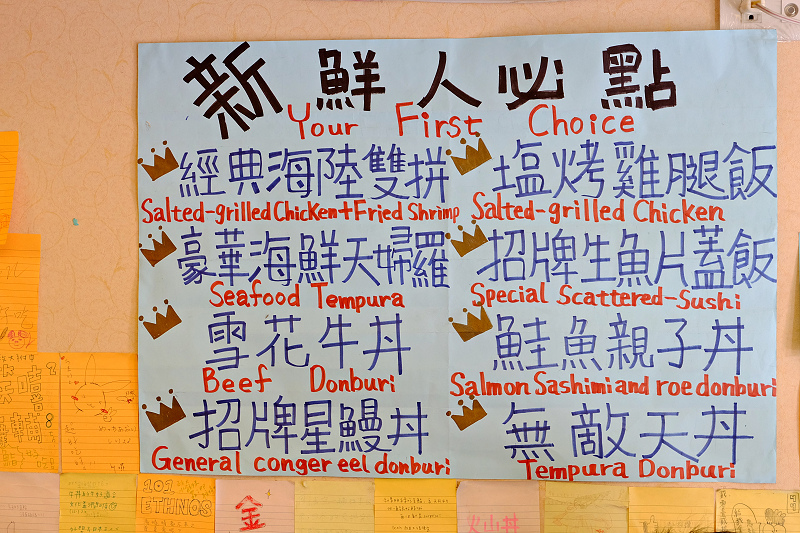 新鮮人必點
Your First Choice
經典海陸雙拼
Salted-grilled Chicken+Fried Shrimp
豪華海鮮天婦羅
Seafood Tempura
雪花牛丼
Beef Donburi
招牌星鰻丼
General conger eel donburi
塩烤雞腿飯
Salted-grilled Chicken
招牌生魚片蓋飯
Special Scattered-Sushi
鮭魚親子丼
Salmon Sashimi and roe donburi
無敵天丼
Tempura Donburi
101
ETHNOS
金
火山丼